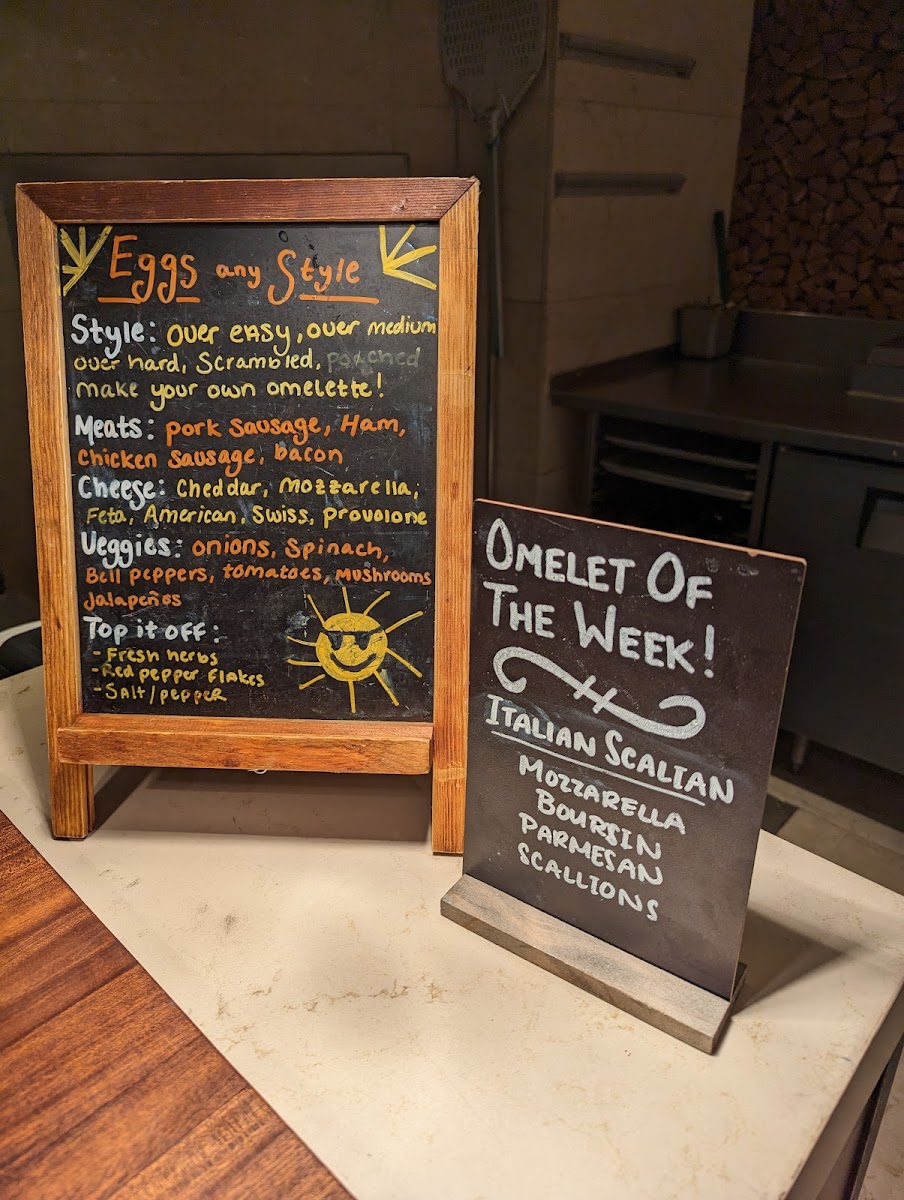 Eggs any Style
Style: over easy, over medium
over hard, Scrambled, poached
make your own omelette!
Meats: pork sausage, Ham,
Chicken sausage, bacon
Cheese: Cheddar, Mozzarella,
Feta, American, Swiss, provolone
Veggies: onions, Spinach,
Bell peppers, tomatoes, mushrooms
Jalapeños
Top it off:
- Fresh herbs
- Red pepper flakes
- Salt/pepper
OMELET OF
THE WEEK!
ITALIAN SCALIAN
MOZZARELLA
BOURSIN
PARMESAN
SCALLIONS